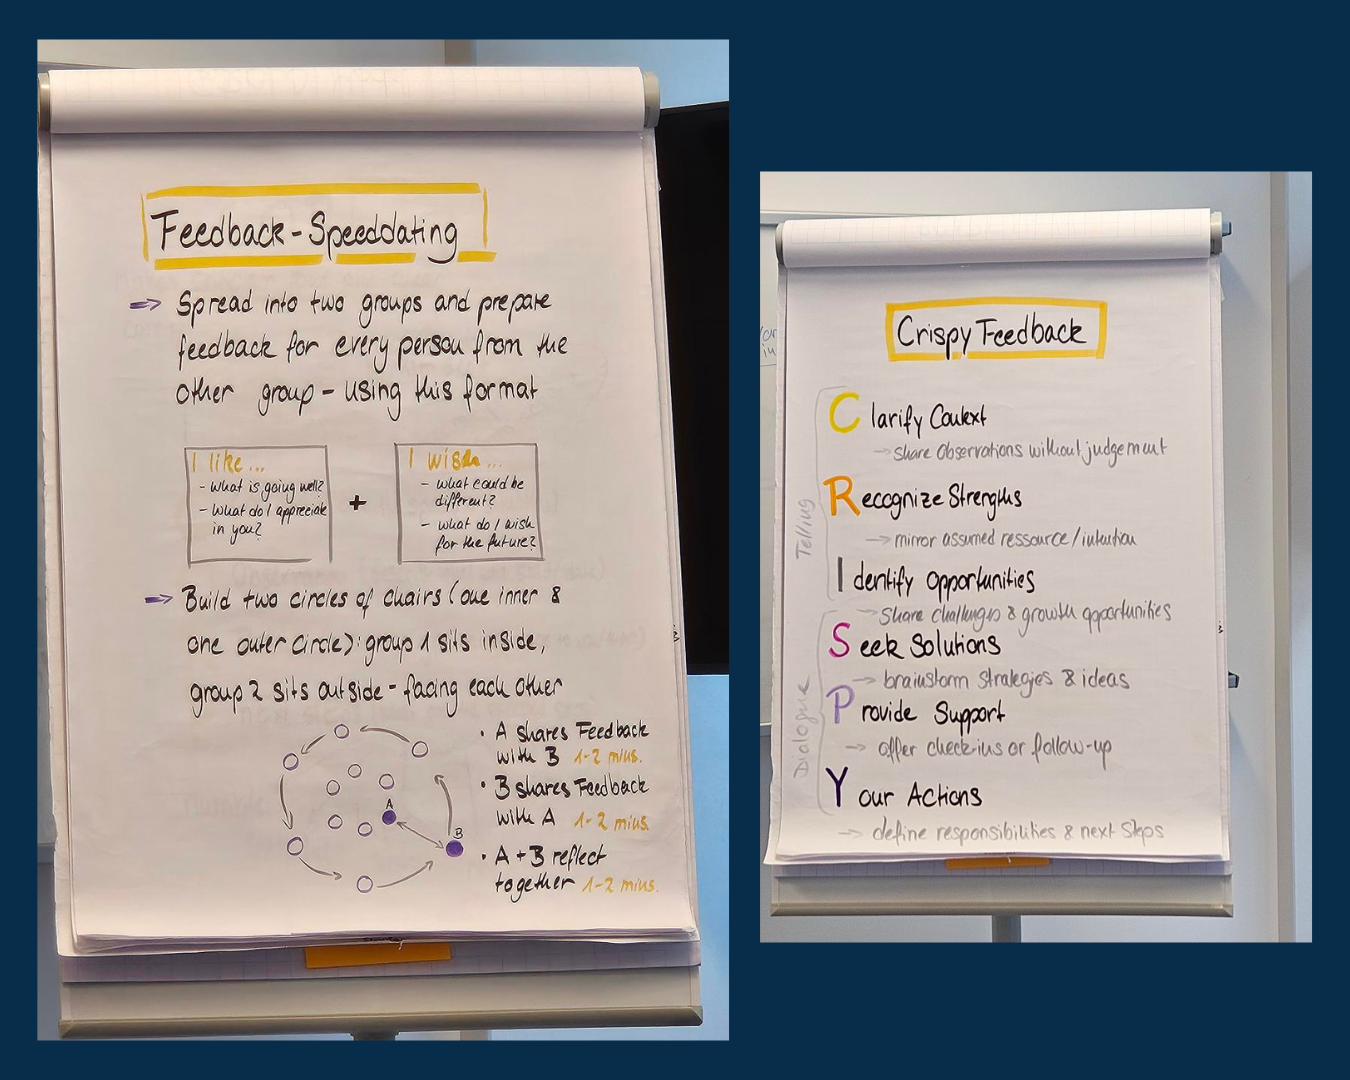 Feedback - Speeddating
Spread into two groups and prepare
feedback for every person from the
other group - using this format
I like...
- what is going well?
- what do I appreciate
in you?
+
I wish...
- what could be
different?
- what do I wish
for the future?
Build two circles of chairs (one inner &
one outer circle): group 1 sits inside,
group 2 sits outside - facing each other
A
B
• A shares Feedback
with B 1-2 mins.
• B shares Feedback
with A 1-2 mins.
• A + B reflect
together 1-2 mins.
Crispy Feedback
Telling
Clarify Context
→ share Observations without judgement
Recognize Strengths
→ mirror assumed ressource / intention
Identify opportunities
→ Share challenges & growth opportunities
Dialogue
Seek Solutions
→ brainstorm strategies & ideas
Provide Support
→ offer check-ins or follow-up
Your Actions
→ define responsibilities & next Steps